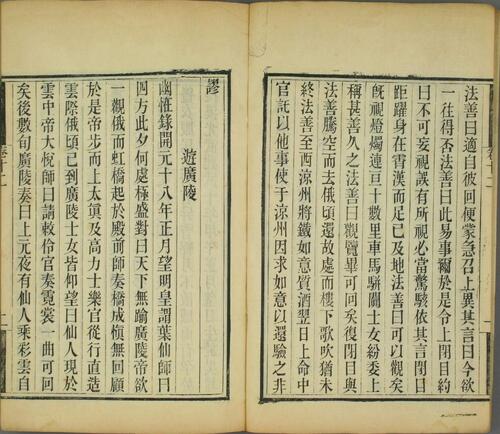 法善曰適自彼回便蒙急召上異其言曰今欲
一往得否法善曰此易事爾於是令上閉目約
曰不可妄視誤有所視必當驚駭依其言閉目
距躍身在霄漢而足已及地法善曰可以觀矣
旣視燈燭連亘十數里車馬騈闐士女紛委上
稱甚善久之法善曰觀覽畢可回矣復閉目與
法善騰空而去俄頃還故處而樓下歌吹猶未
終法善至西涼州將鐵如意質酒翌日上命中
官託以他事使于涼州因求如意以還驗之非
謬
遊廣陵
幽恠錄開元十八年正月望明皇謂葉仙師曰
四方此夕何處極盛對曰天下無踰廣陵帝欲
一觀俄而虹橋起於殿前師奏橋成愼無回顧
於是帝步而上太眞及高力士樂官從行直造
雲際俄頃已到廣陵士女皆仰望曰仙人現於
雲中帝大悅師曰請敕伶官奏霓裳一曲可回
矣後數旬廣陵奏曰上元夜有仙人乘彩雲自